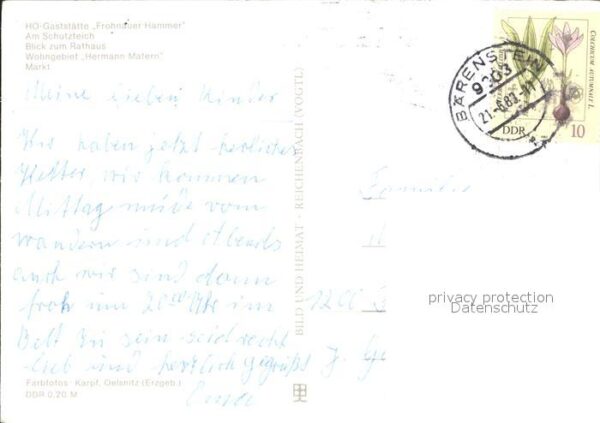 HO-Gaststätte „Frohnauer Hammer"
Am Schutzteich
Blick zum Rathaus
Wohngebiet „Hermann Matern"
Markt
Meine lieben Kinder
Wir haben jetzt herrliches
Wetter, wir kommen
Mittag müde vom
wandern und Abends
auch wir sind dann
froh um 20 00 Uhr im
Bett zu sein seid recht
lieb und herzlich gegrüßt
Farbfotos: Karpf, Oelsnitz (Erzgeb.)
DDR 0,20 M
BILD UND HEIMAT · REICHENBACH (VOGTL)
COLCHICUM AUTUMNALE L.
DDR 10
BÄRENSTEIN
9303
Familie
privacy protection
Datenschutz